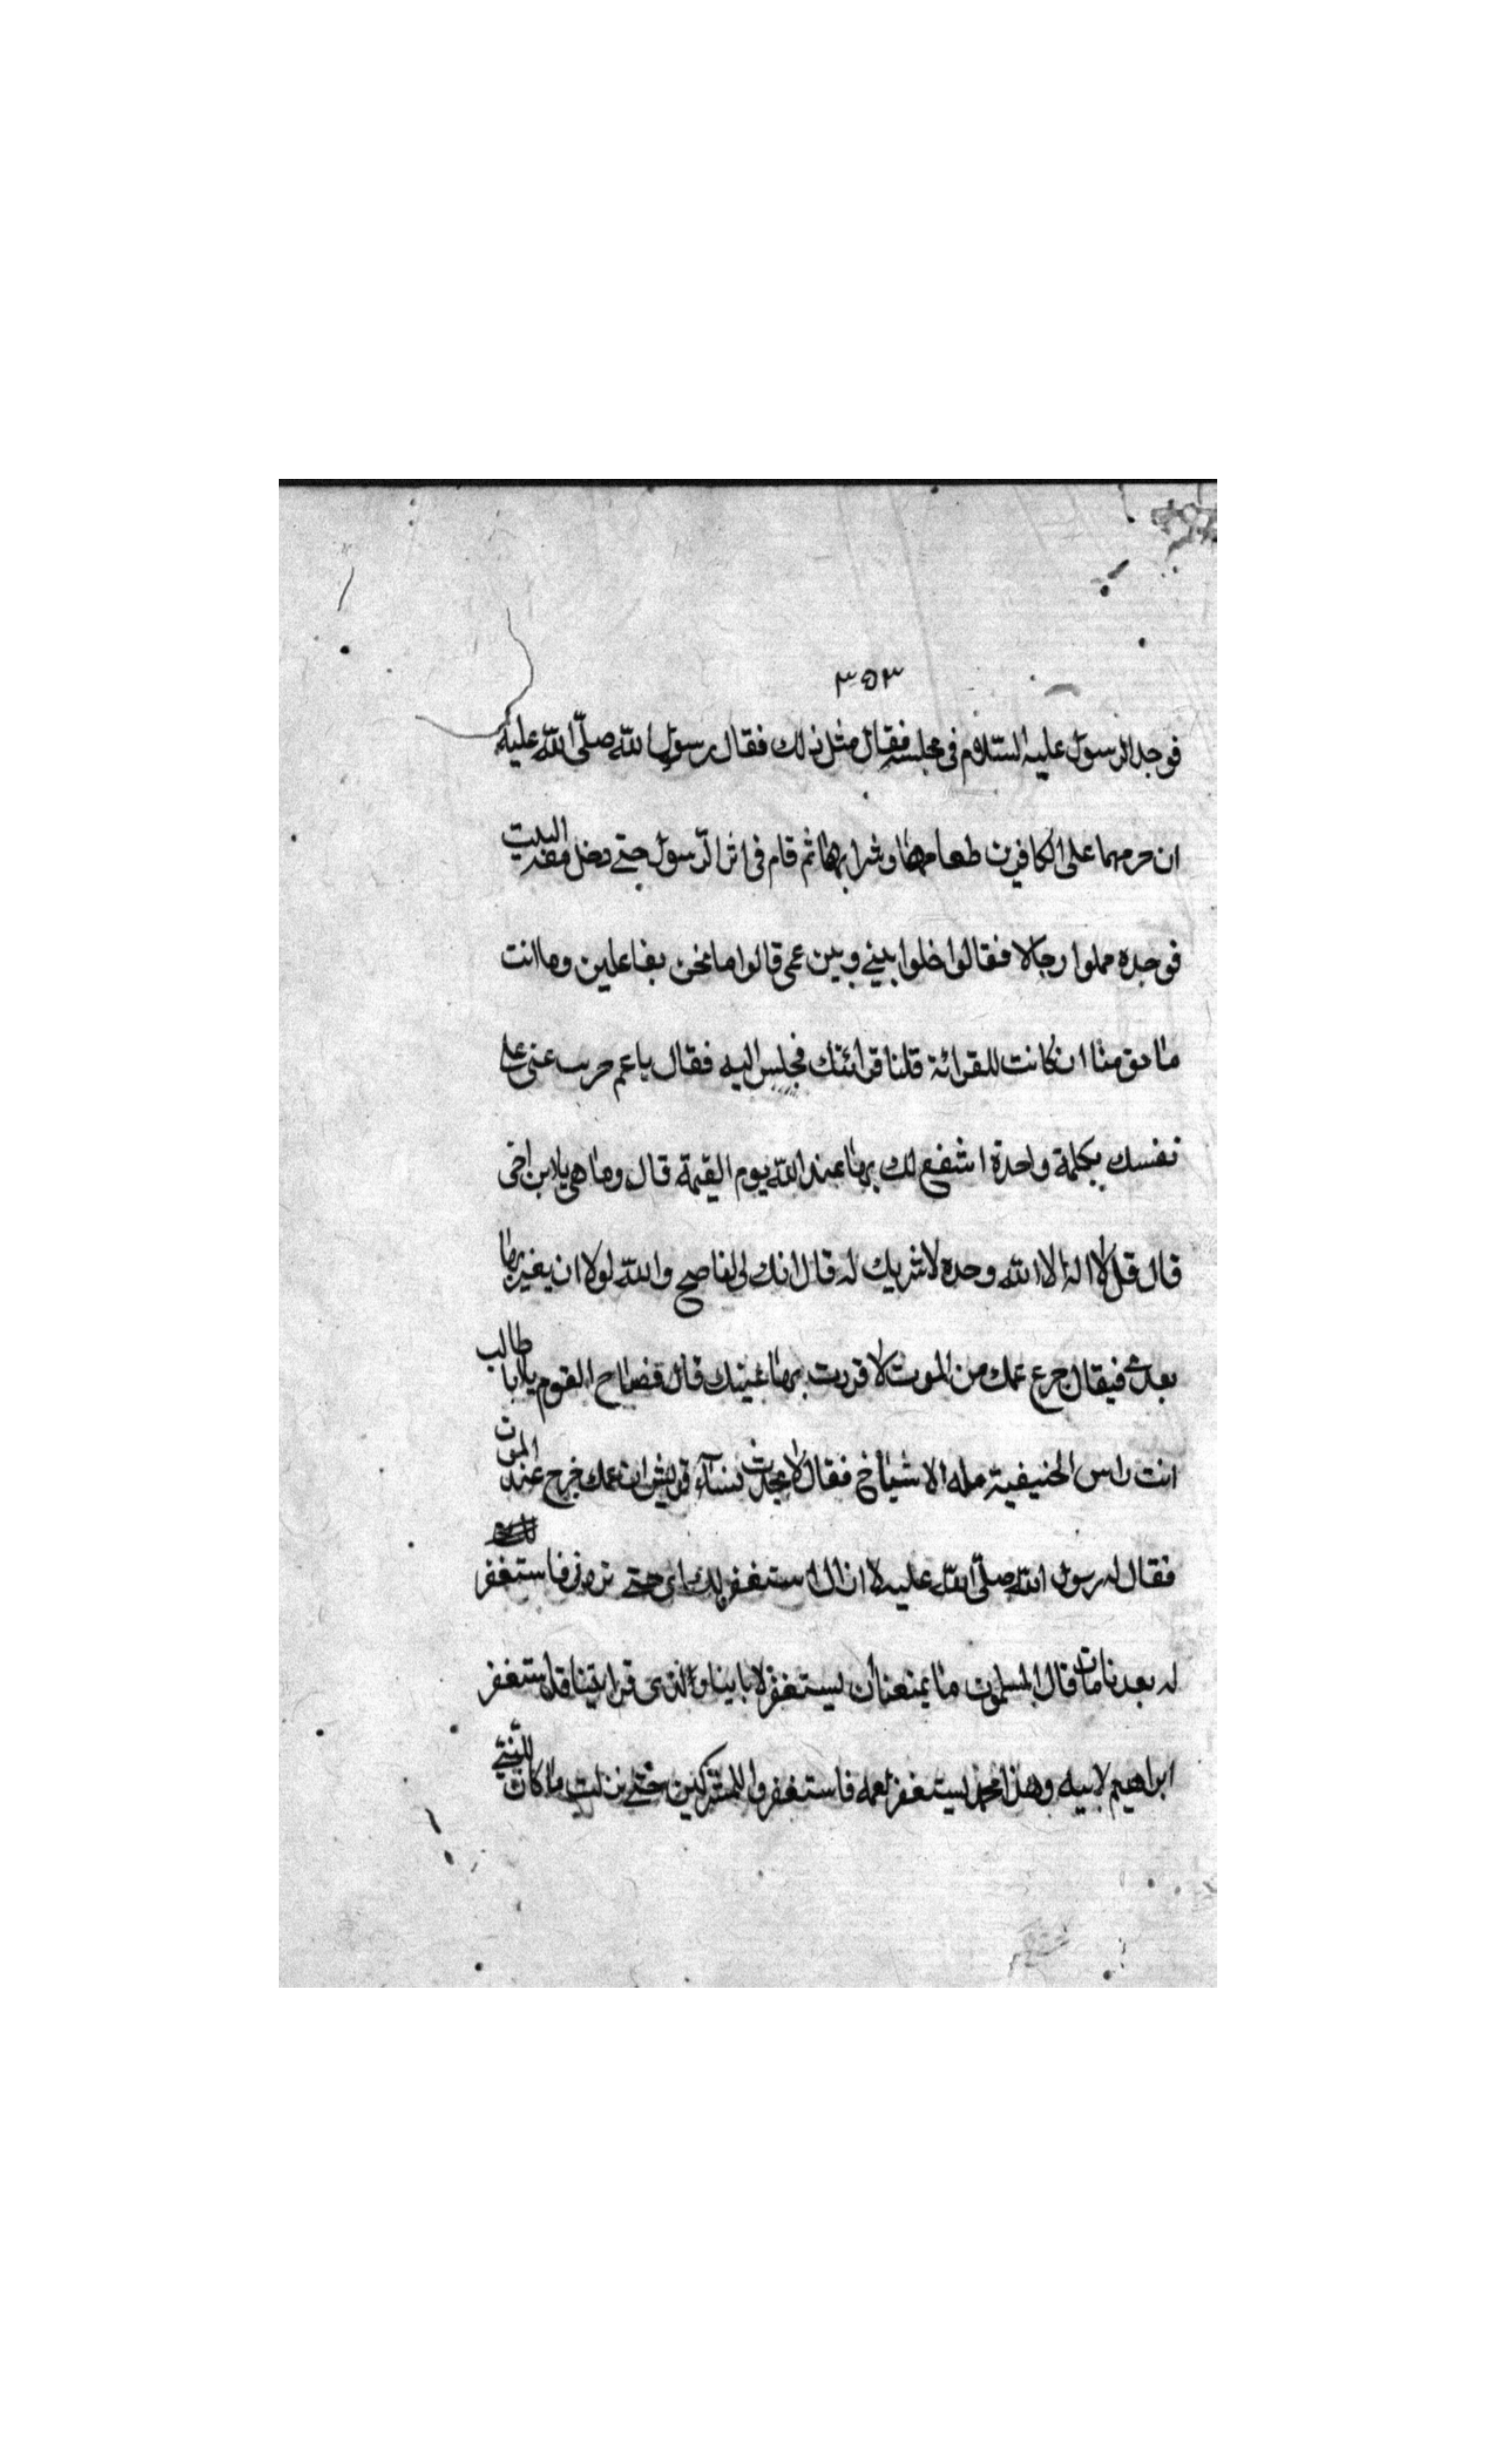 ٣٥٣
فوجد الرسول عليه السلام فى مجلسه فقال مثل ذلك فقال رسول الله صلّى الله عليه
ان حرمهما على الكافرين طعامها وشرابها ثم قام فى اثر الرسول حتى دخل معه البيت
فوجده مملوا رجالا فقالوا خلوا بينى وبين عمى قالوا ما نحن بفاعلين وما انت
ما حق منا ان كانت للقرائة قلنا قرائتك فجلس اليه فقال يا عم حرب عنى على
نفسك بكلمة واحدة اشفع لك بها عند الله يوم القيمة قال وما هى يا ابن اخى
قال قل لا اله الا الله وحده لا شريك له قال انك لى لناصح والله لولا ان يغير بها
بعدى فيقال جرع عمك من الموت لاقررت بها عينك قال فصاح القوم يا ابا طالب
انت راس الحنيفية مله الاشياخ فقال لا تحدث نساء قريش ان عمك جرح عند الموت
فقال له رسول الله صلّى الله عليه لا ازال استغفر لك حتى فاستغفر
له بعد ما مات قال المسلمون ما يمنعنا ان نستغفر لابائنا والذى قرابتنا قد استغفر
ابراهيم لابيه وهذا محمد يستغفر لعمه فاستغفروا للمشركين حتى نزلت ما كان للنبى